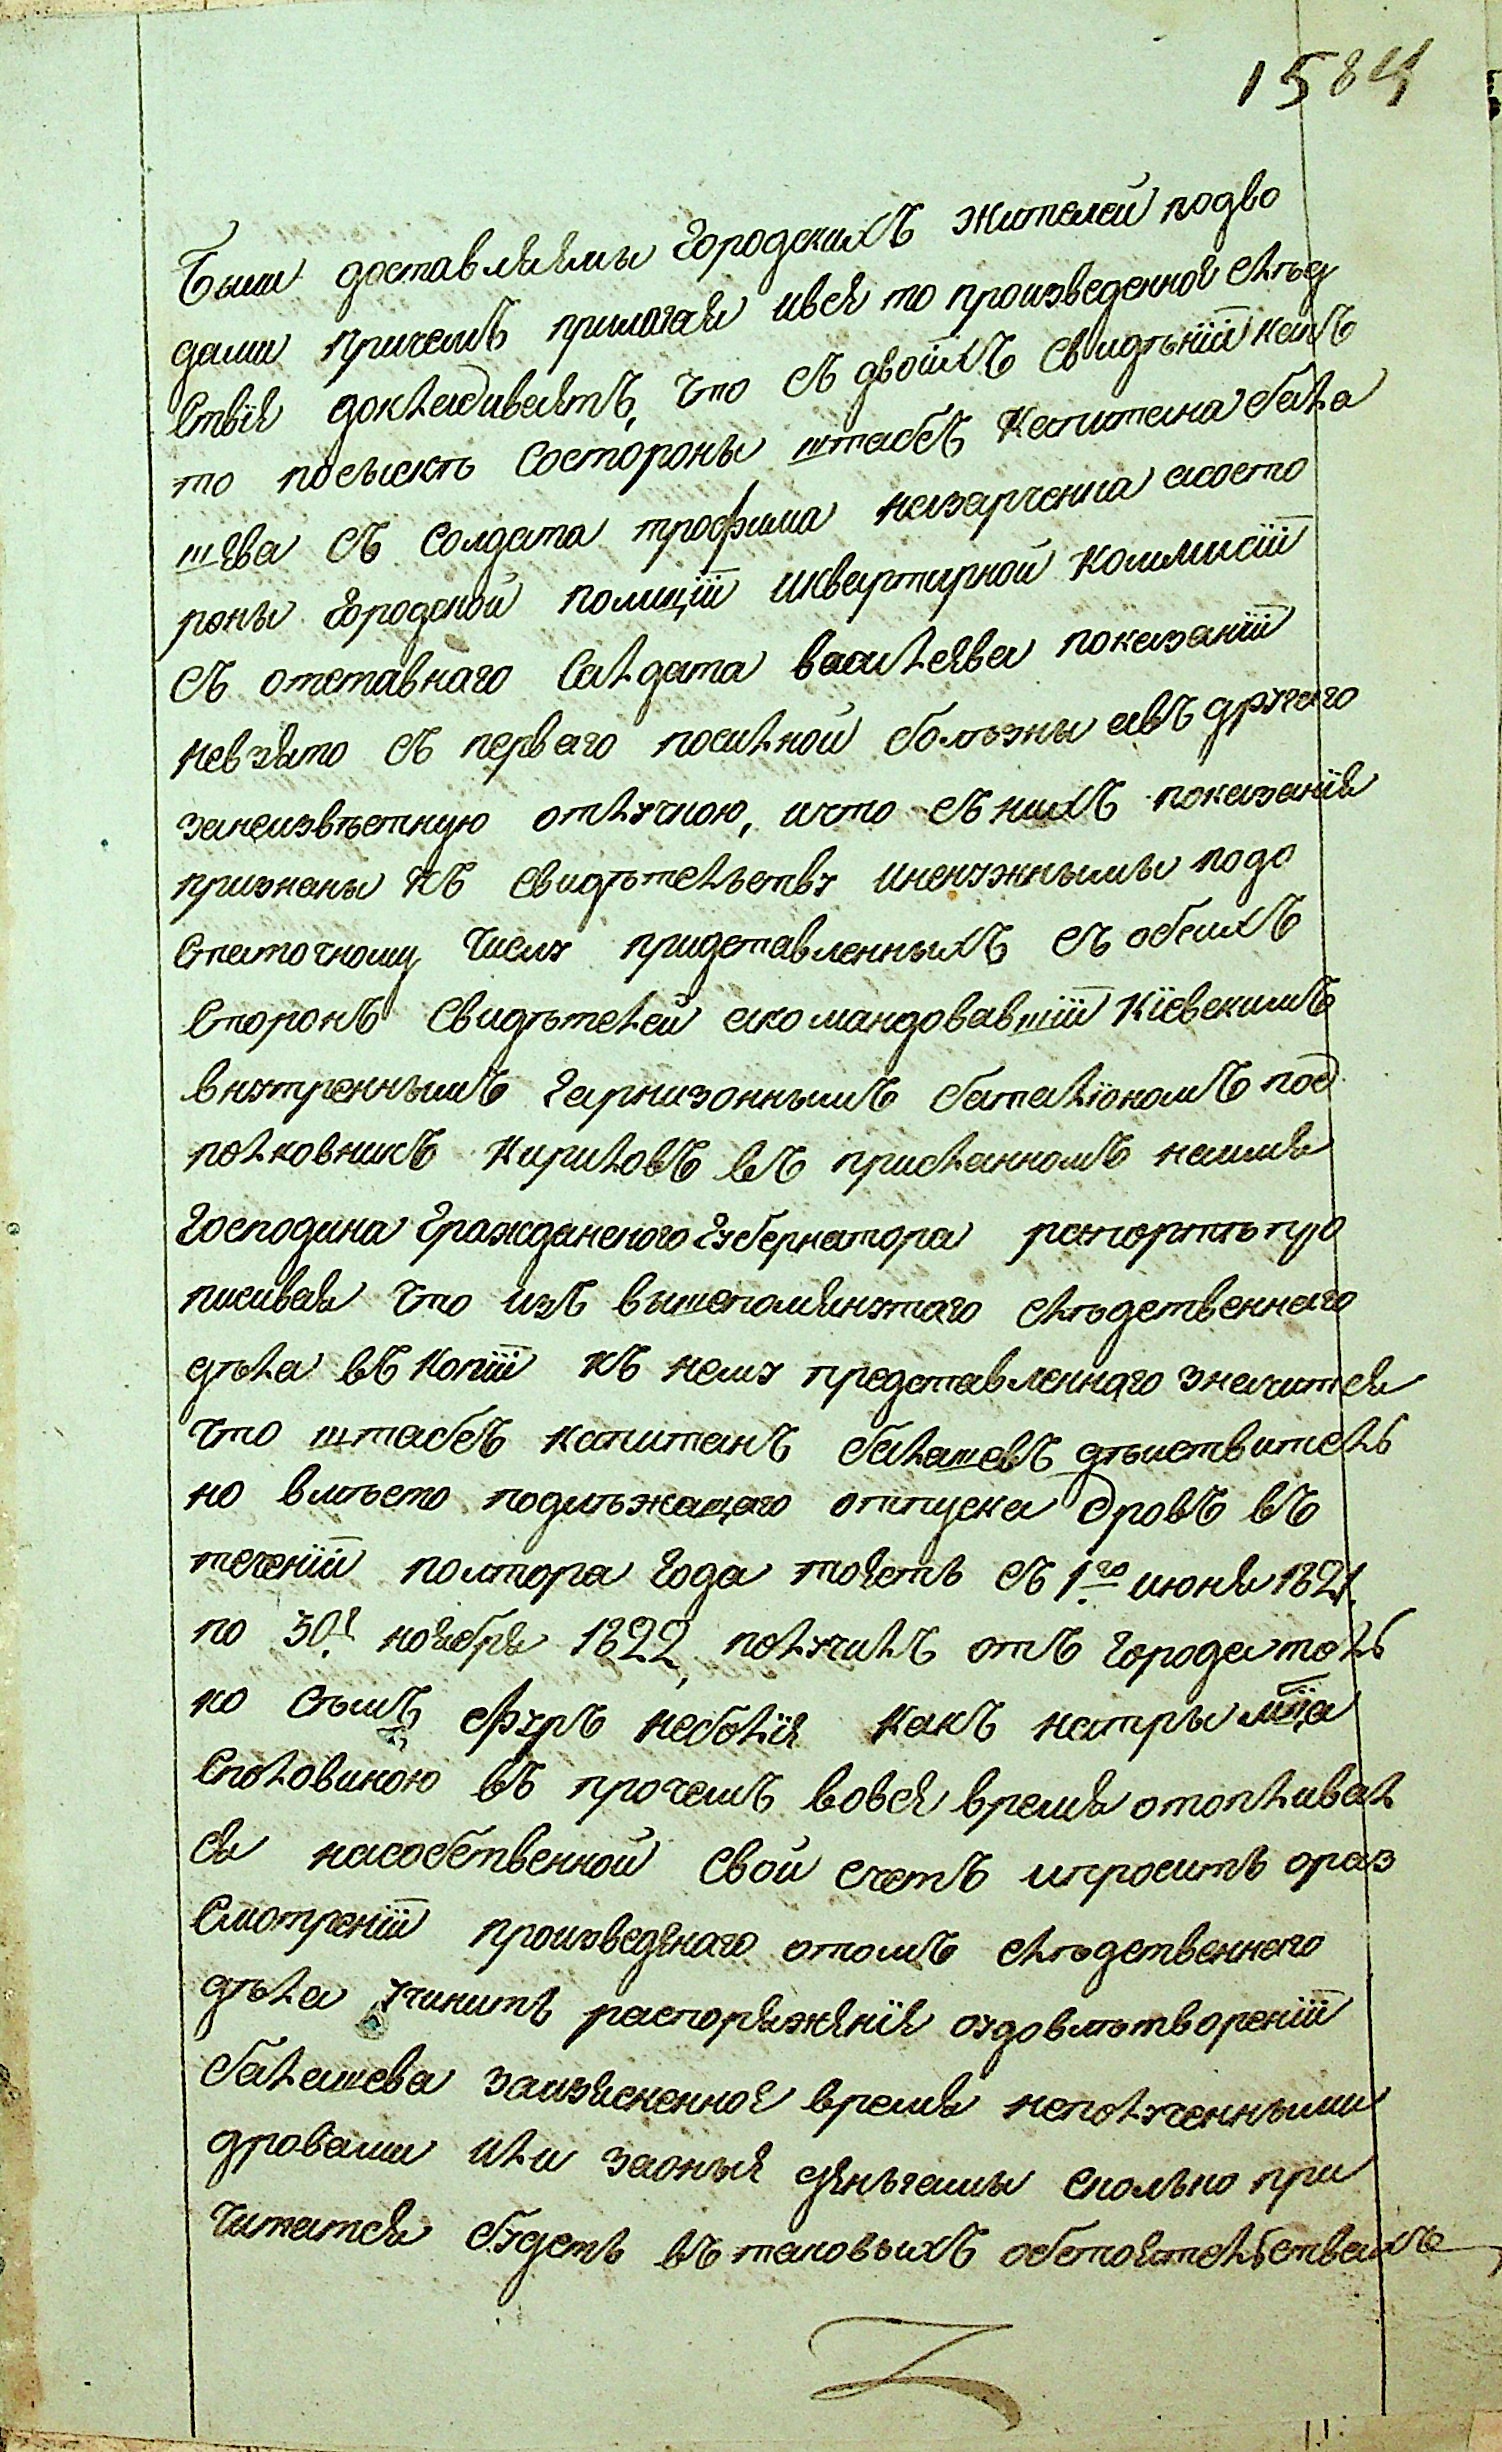 1584
были доставляямы городскихъ жителей подво
дами причемъ прилагая ився то произведенноя слѣд
ствія докладиваятъ, что съ двоихъ свидѣній какъ
то посыскѣ состороны штабсъ капитана бала
шява съ солдата трофима назарченка асосто
роны городской полиціи иквартирной коммисіи
съ отставнаго салдата васильява показаній
невзято съ перваго посильной болѣзны авъ другаго
занеизвѣстную отлучкою, ичто съ нихъ показанія
признаны къ свидѣтельству иненужнымы подо
статочному числу придставленныхъ съ обеихъ
сторонъ свидѣтелей акомандовавшій кіевскимъ
внутреннымъ гарнизоннымъ баталіономъ под
полковникъ кириловъ въ присланномъ наимя
господина гражданского губернатора рапортѣ про
писивая что изъ вышепомянутаго слѣдственнаго
дѣла въ копіи къ нему представленнаго значится
что штабсъ капитанъ балашевъ дѣиствитель
но вмѣсто подлѣжащаго отпуска дровъ въ
теченіи полтора года тоятъ съ 1го июня 1821.
по 30я ноября 1822, получилъ отъ города толь
ко съмъ фуръ неболія какъ натры мца
споловиною въ прочемъ вовся время отопливал
ся насобственной свой счетъ ипроситъ ораз
смотреніи произведянаго отомъ слѣдственнаго
дѣла учинить распоряжянія оудовлѣтвореніи
балашева заизясненноя время неполученными
дровами или заоныя дянѣгамы сколько при
читатся будетъ въ таковыхъ обстоятельствахъ